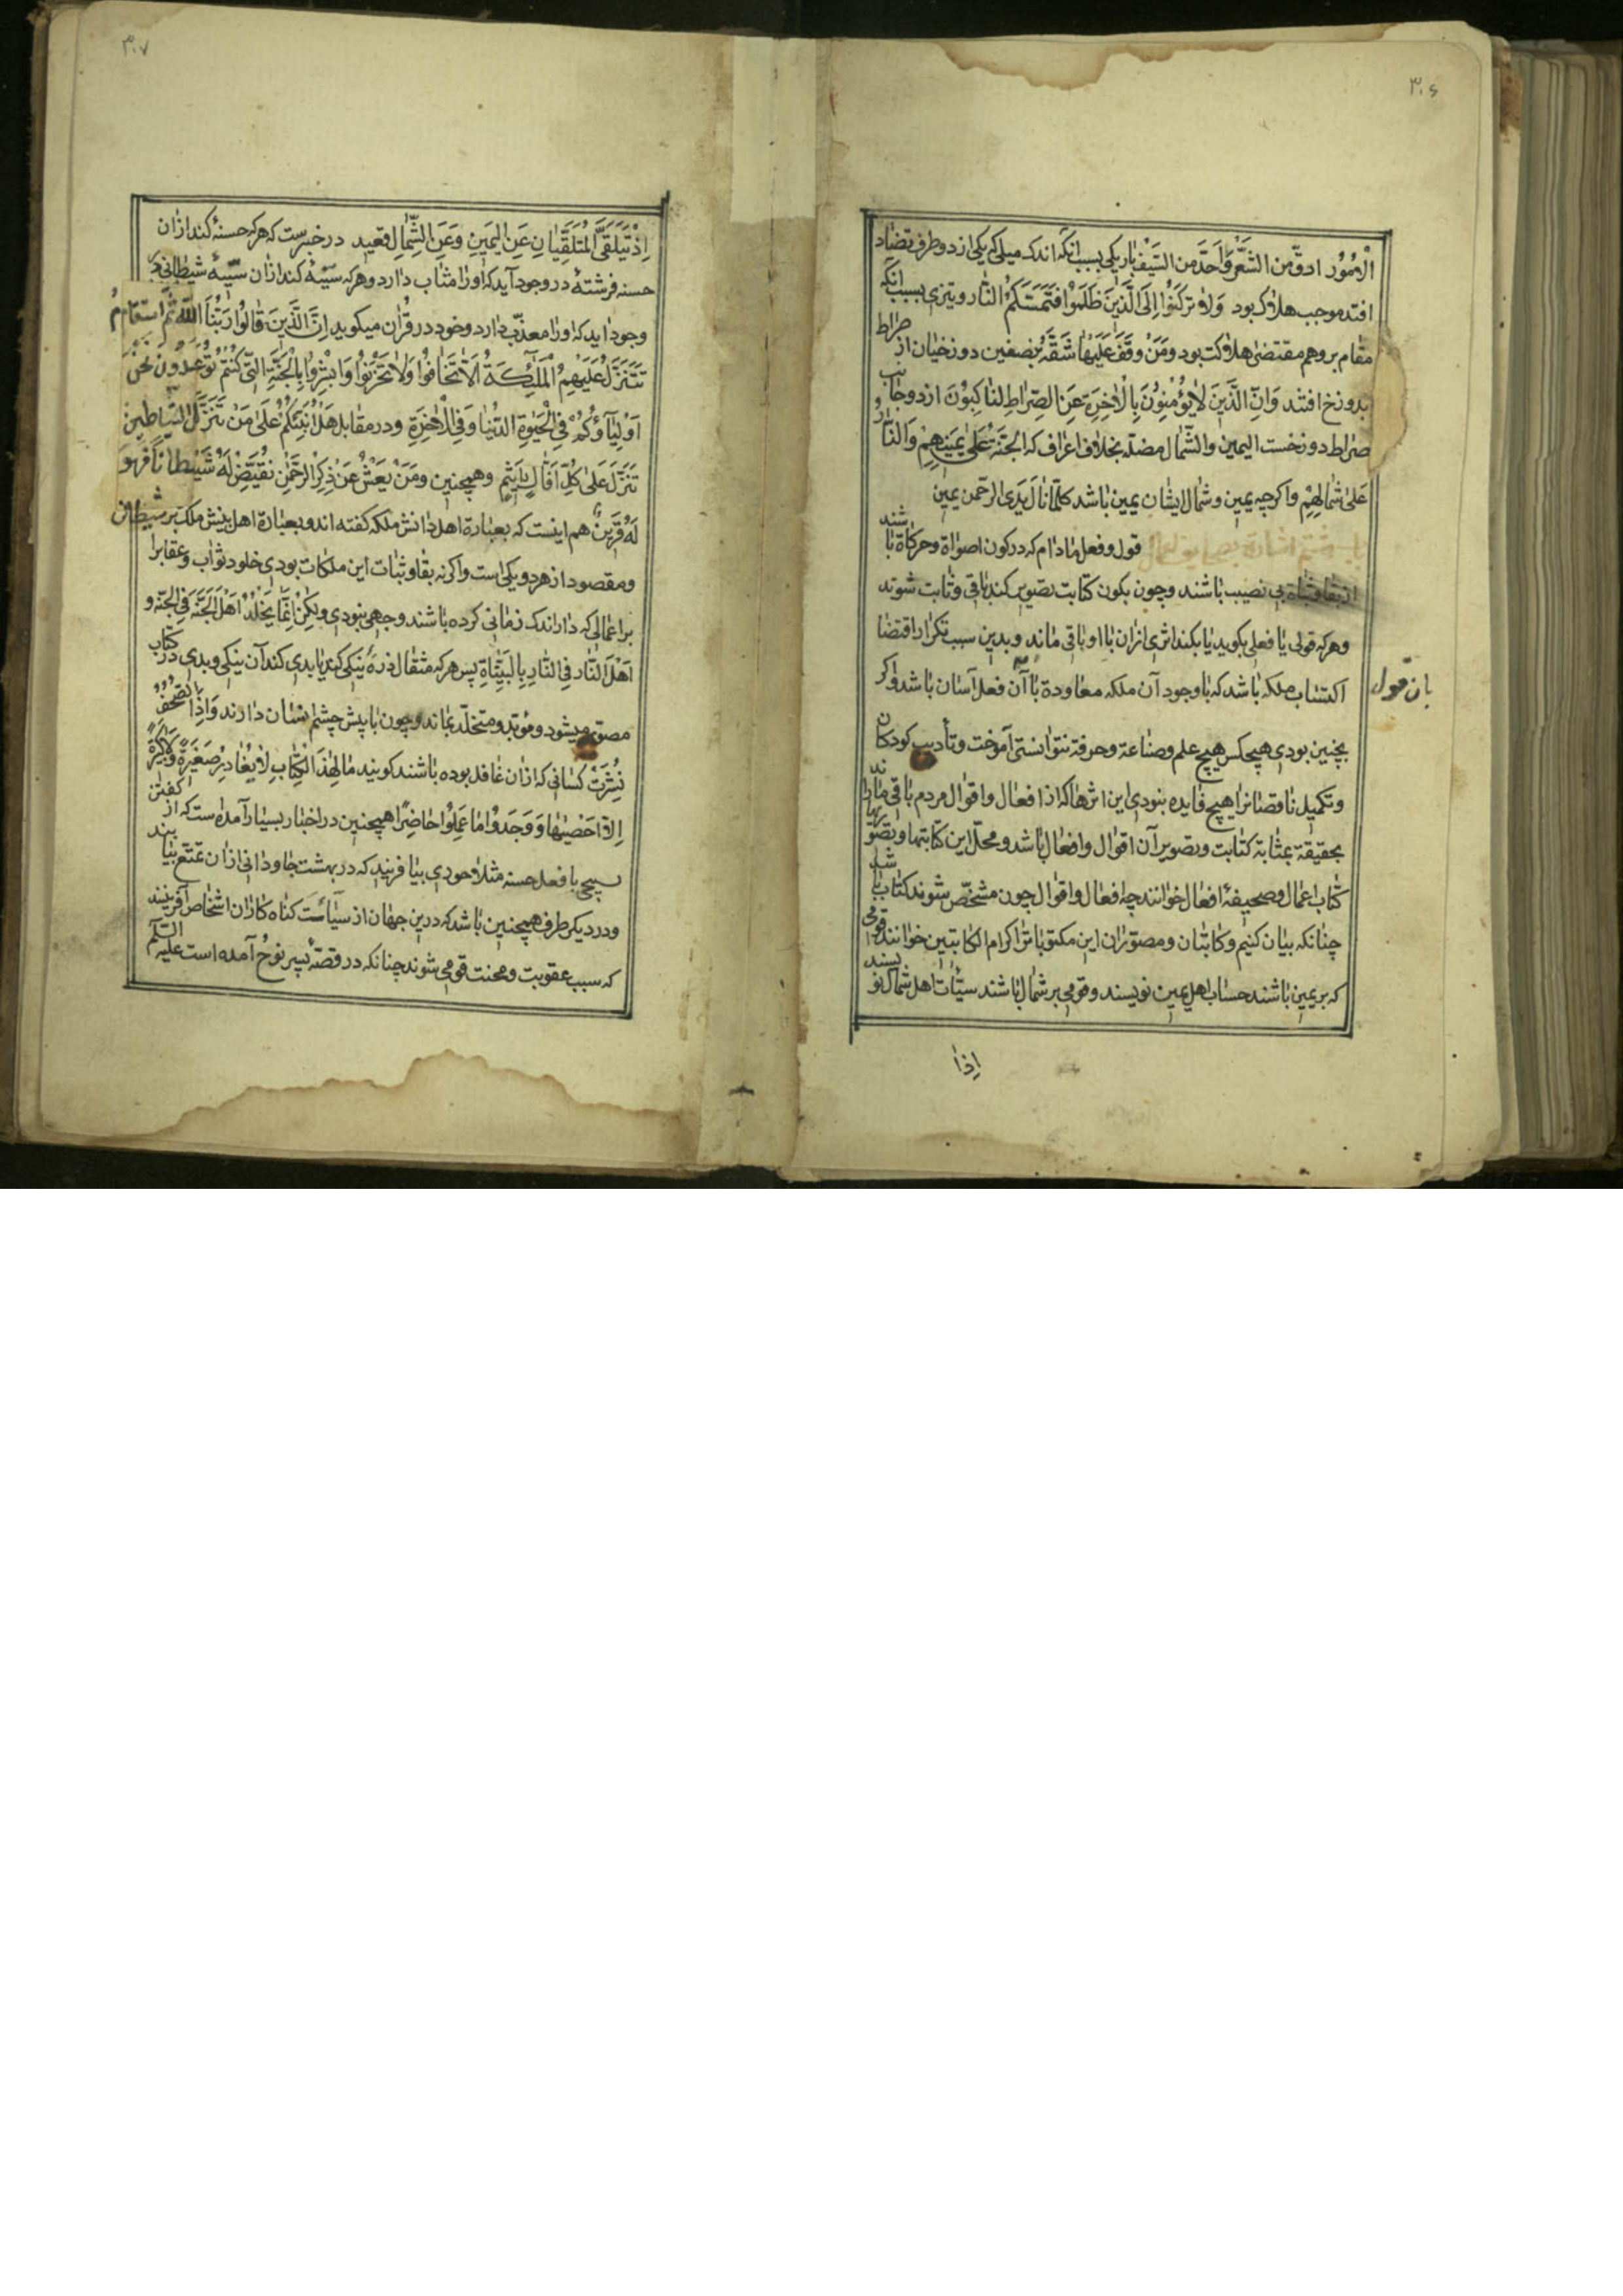 ۳۰۶
الْاُمُوُر ادقّ من الشَّعْرِ وَاَحَدَّ من السَّيْف باريكى بسبب انكه اندك ميلى كه بيكى از دو طرف تضاد
افتد موجب هلاك بود وَلاٰ تَركَنُوا اِلَى الَّذَّينَ ظَلَمُوا فَتَمَسَّكَمُ النّار و تيزى بسبب انكه
مقام برو هم مقتضى هلاكت بود وَمَنْ وقَفَ عَلَيْهٰا شَقَّهُ بِنصفين دوزخيان از صراط
بدوزخ افتند وَاِنَّ الَّذَّينَ لاٰيُؤمِنوُنَ بِالْاٰخِرَةِ عَنِ الصِّراطِ لَناٰكِبوُنَ از دو جانب
صراط دوزخست اليمين والشّمال مضلّه بخلاف اعراف كه الجَنَّة عَلىٰ يمَينهِمْ وَالنّار
عَلىٰ شمٰالِهِمْ واكرچه يمين و شمال ايشان يمين باشد كلتا يَدَى الرّحمن يمين
قول و فعل مادام كه در كون اصواة و حركاة باشند
از بقا و ثباة بى نصيب باشند و چون بكون كتابت تصوير كند باقى و ثابت شوند
و هركه قولى يا فعلى بكويد يا بكند اثرى ازان با او باقى ماند و بدين سبب تكرار اقتضا
اكتساب ملكه باشد كه با وجود آن ملكه معاودة با آن فعل آسان باشد و اكر
بان قول
نچنين بودى هيچ كس هيچ علم و صناعة و حرفة نتوانستى آموخت و تأديب كودكان
و تكميل ناقصانرا هيچ فايده نبودى اين اثرها كه از افعال و اقوال مردم باقى ماند
بحقيقة بمثابة كتابت و تصوير آن اقوال و افعال باشد و محلّ اين كتابتها و تصويرها را
كتاب اعمال و صحيفهٔ افعال خوانند چه افعال و اقوال چون مشخّص شوند كتاب باشد
چنانكه بيان كنيم و كاتبان و مصوّران اين مكتوباترا كرام الكاتبين خوانند قومى
كه بر يمين باشند حساب اهل يمين نويسند و قومى بر شمال باشند سيّئات اهل شمال نويسند
اِذْا
۳۰۷
اِذْ يَتَلَقَّى الْمُتَلَقِّيٰانِ عَنِ الْيَمينِ وَعَنِ الشِّمٰالِ قعيد در خبرست كه هركه حسنهٔ كند ازان
حسنه فرشتهٔ در وجود آيد كه اورا مثاب دارد و هركه سيّئهٔ كند ازان سيّئهٔ شيطانى در
وجود ايد كه اورا معذّب دارد و خود در قرآن ميكويد اِنَّ الَّذينَ قٰالُوا رَبُّنَا اللّٰهُ ثُمَّ اسْتَقامُو
تَتَنَزَّلُ عَلَيْهِمُ الْمَلٰٓئِكَةُ اَلاّٰ تَخٰافُوا وَلاٰ تَحْزَنُوا وَاَبْشِرُوا بِالْجَنَّةِ الَّتى كُنْتُمْ تُوعَدُونَ نَحْنُ
اَوْلِيٰٓاؤُكُمْ فِى الْحَيٰوةِ الدُّنْيٰا وَفِى الْاٰخِرَةِ و در مقابل هَلْ اُنَبِّئُكُمْ عَلىٰ مَنْ تَنَزَّلُ الشَّيٰاطين
تَنَزَّلُ عَلىٰ كُلِّ اَفّٰاكٍ اَثيٖمٍ و همچنين وَمَنْ يَعْشُ عَنْ ذِكْرِ الرَّحْمٰنِ نُقَيِّضْ لَهُ شَيْطٰانًا فَهُوَ
لَهُ قَرينٌ هم اينست كه بعبارة اهل دانش ملكه كفته اند و بعبارة اهل بينش ملك بر شيطان
و مقصود از هر دو يكى است و اكر نه بقا و ثبات اين ملكات بودى خلود ثواب و عقابرا
بر اعمالى كه در اندك زمانى كرده باشند وجهى نبودى ولٰكِنْ اِنَّمٰا يُخَلَّدُ اَهْلُ الجَنَّة فِى الجنّة و
اَهْلُ النّار فِى النّارِ بِالنِيّٰاتِ پس هركه مثقال ذرهٔ نيكى كند يا بدى كند آن نيكى و بدى در كتاب
مصوّر ميشود و مؤبّد و مخلّد بماند و چون با پيش چشم ايشان دارند وَاِذَا الصُّحُفُ
نُشِرَتْ كسانى كه ازان غافل بوده باشند كويند مٰا لِهٰذَا الْكِتٰابِ لاٰ يُغٰادِرُ صَغيرَةً وَلاٰ كَبيرَةً
اِلاّٰ اَحْصٰيهٰا وَوَجَدُوا مٰا عَمِلُوا حٰاضِرًا همچنين در اخبار بسيار آمده ست كه از كفتن
تسبيحى يا فعل حسنه مثلا حورى بيافرينند كه در بهشت جاودانى ازان تمتّع يابند
و در ديكر طرف همچنين باشد كه درين جهان از سيّآت كناه كاران اشخاص آفرينند
كه سبب عقوبت و محنت قومى شوند چنانكه در قصّهٔ پسر نوح آمده است عليه السّلم